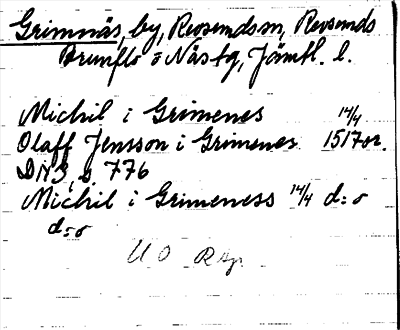 Grimnäs, by, Revsundssn, Revsunds
Brunflo o Näs tg, Jämtl. l.
Michil i Grimenes 14/4
Olaff Jensson i Grimenes 1517 or.
DN 3, s. 776
Michil i Grimeness 14/4 d:o
d:o
U O Rap.